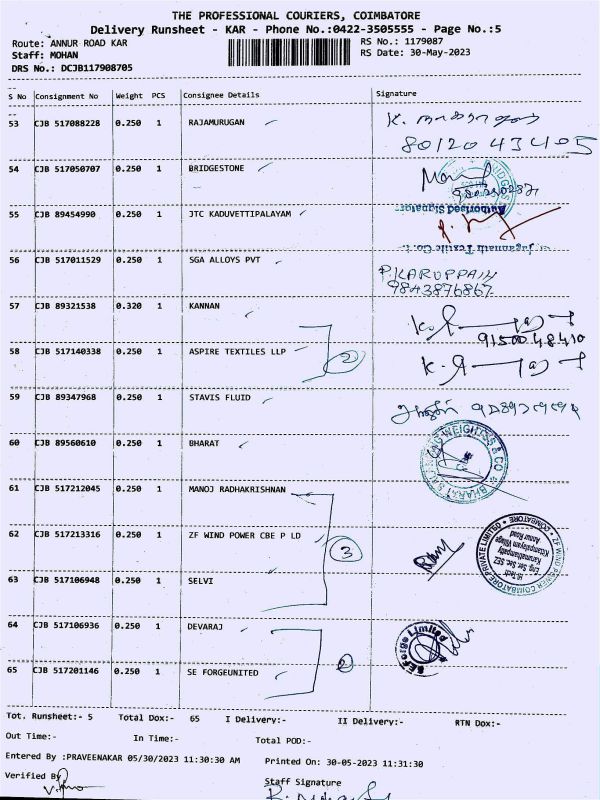 THE PROFESSIONAL COURIERS, COIMBATORE
Delivery Runsheet - KAR - Phone No.:0422-3505555 - Page No.:5
Route: ANNUR ROAD KAR
RS No.: 1179087
Staff: MOHAN
RS Date: 30-May-2023
DRS No.: DCJB117908705
S No Consignment No Weight PCS Consignee Details Signature
53 CJB 517088228 0.250 1 RAJAMURUGAN
80120 43405
54 CJB 517050707 0.250 1 BRIDGESTONE
55 CJB 89454990 0.250 1 JTC KADUVETTIPALAYAM
Authorised Signatory
Jagannath Textile Co.
56 CJB 517011529 0.250 1 SGA ALLOYS PVT
P.KARUPPAIH
9843876867
57 CJB 89321538 0.320 1 KANNAN
91500 48410
58 CJB 517140338 0.250 1 ASPIRE TEXTILES LLP
2
59 CJB 89347968 0.250 1 STAVIS FLUID
60 CJB 89560610 0.250 1 BHARAT
61 CJB 517212045 0.250 1 MANOJ RADHAKRISHNAN
62 CJB 517213316 0.250 1 ZF WIND POWER CBE P LD
3
ZF WIND POWER COIMBATORE PRIVATE LIMITED
COIMBATORE
Hi-Tech
Eng. Ser. Sec. SEZ
Annur Road
63 CJB 517106948 0.250 1 SELVI
64 CJB 517106936 0.250 1 DEVARAJ
Forge Limited
65 CJB 517201146 0.250 1 SE FORGEUNITED
2
Tot. Runsheet:- 5 Total Dox:- 65 I Delivery:- II Delivery:- RTN Dox:-
Out Time:- In Time:- Total POD:-
Entered By :PRAVEENAKAR 05/30/2023 11:30:30 AM Printed On: 30-05-2023 11:31:30
Verified By
Staff Signature